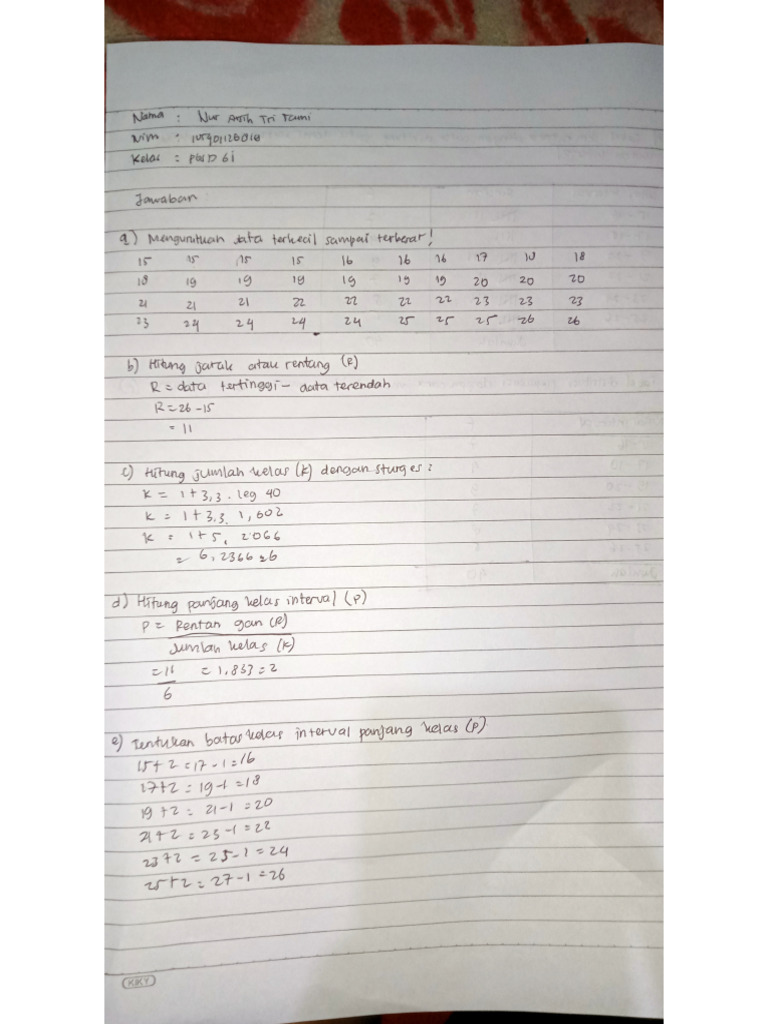 Nama : Nur Asih Tri Tami
Nim :
Kelas : PGSD 6i
Jawaban
a) Mengurutkan data terkecil sampai terberat!
15 15 15 15 16 16 16 17 18 18
18 19 19 19 19 19 19 20 20 20
21 21 21 22 22 22 22 23 23 23
23 24 24 24 24 25 25 25 26 26
b) Hitung jarak atau rentang (R)
R = data tertinggi - data terendah
R = 26 - 15
= 11
c) Hitung jumlah kelas (k) dengan sturges :
k = 1 + 3,3 . log 40
k = 1 + 3,3 . 1,602
k = 1 + 5, 2066
= 6,2366 ≈ 6
d) Hitung panjang kelas interval (P)
P = Rentan gan (R)
Jumlah kelas (K)
= 11 = 1,833 = 2
6
e) Tentukan batas kelas interval panjang kelas (P)
15 + 2 = 17 - 1 = 16
17 + 2 = 19 - 1 = 18
19 + 2 = 21 - 1 = 20
21 + 2 = 23 - 1 = 22
23 + 2 = 25 - 1 = 24
25 + 2 = 27 - 1 = 26
KIKY